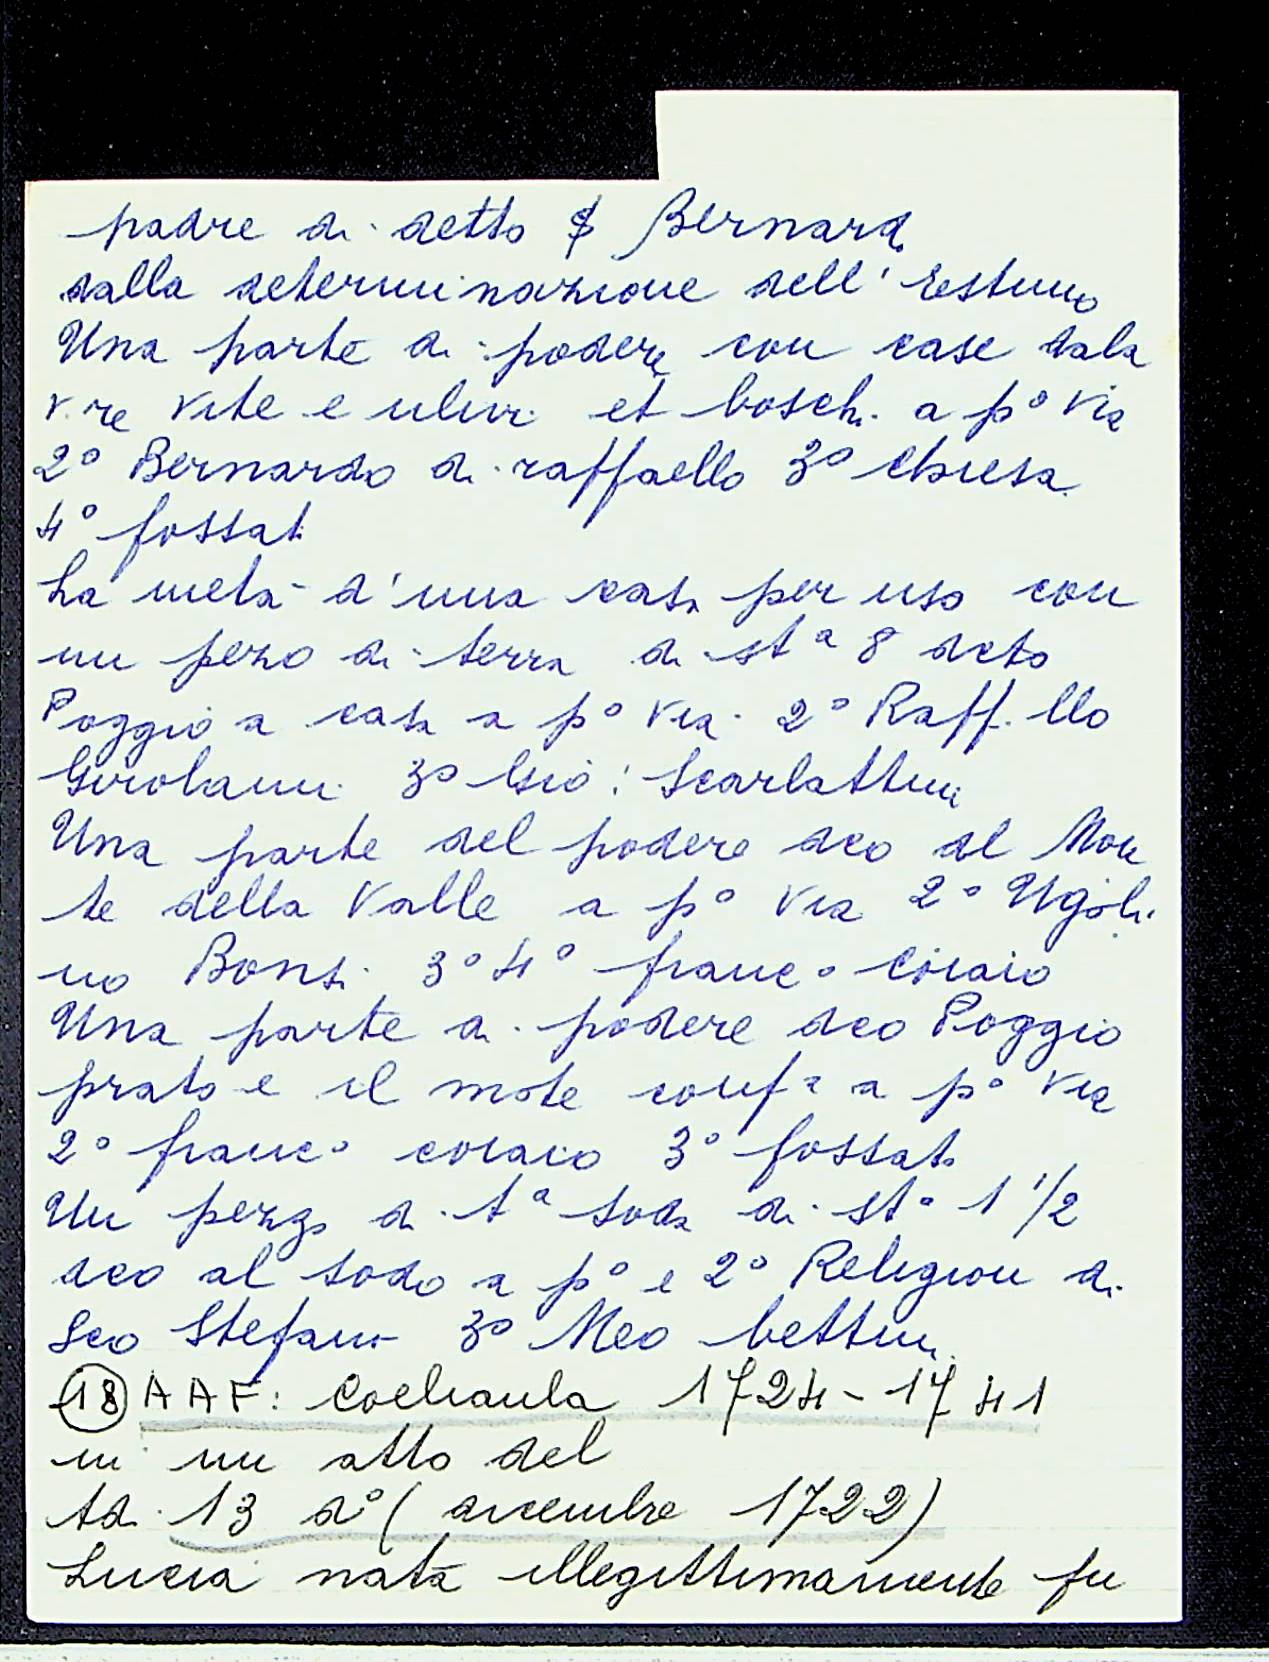 padre di detto $ Bernardo
dalla determinazione dell'Estimo
Una parte di podere con case lala
v.re vite e ulivi et boschi a p° via
2° Bernardo di raffaello 3° chiesa
4° fossato
La metà d'una casa per uso con
un pezzo di terra di st a 8 deto
Poggio a casa a p° via 2° Raff.llo
Girolami 3° Gio: Scarlattini
Una parte del podere dco al Mon
te della Valle a p° via 2° Ugoli
no Bonsi 3° 4° franc° coiaio
Una parte di podere dco Poggio
prato e il mote conf a a p° via
2° franc° coiaio 3° fossato
Un pezzo di t a soda di st a 1 1/2
dco al sodo a p° e 2° Religion di
Sco Stefano 3° Meo bettini
(18) AAF: Cocchiaula 1724-1741
in un atto del
Ad. 13 d° (dicembre 1722)
Lucia nata illegittimamente fu